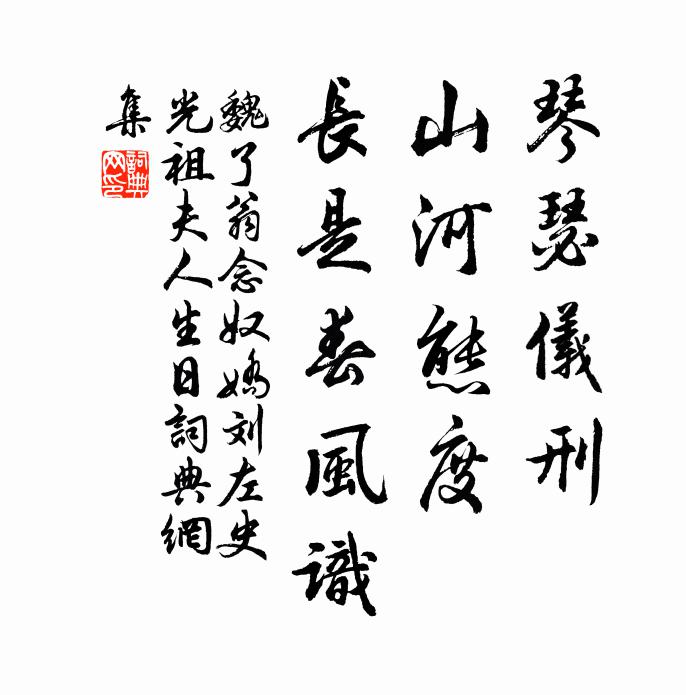 琴瑟儀刑
山河態度
長是春風識
魏了翁念奴嬌刘左史
光祖夫人生日詞典網
集
詞典
网印